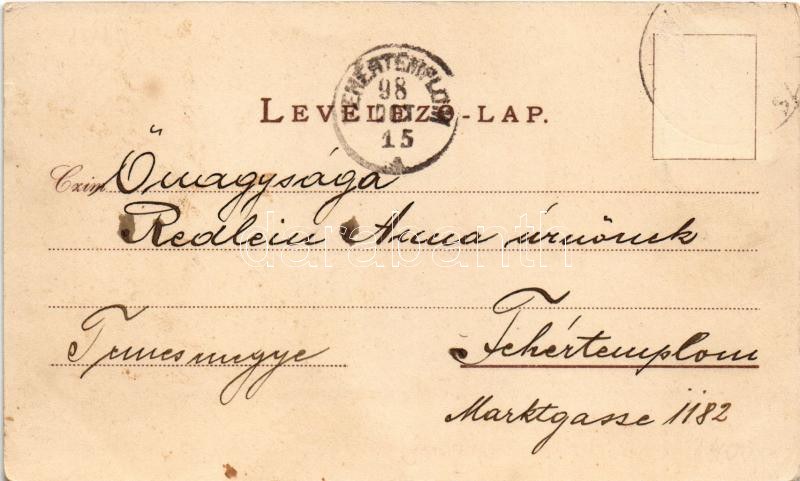 FEHÉRTEMPLOM
98
OCT
15
LEVELEZŐ-LAP.
Czim Őnagysága
Redlein Anna úrnőnek
Temesmegye
Fehértemplom
Marktgasse 1182
darabanth